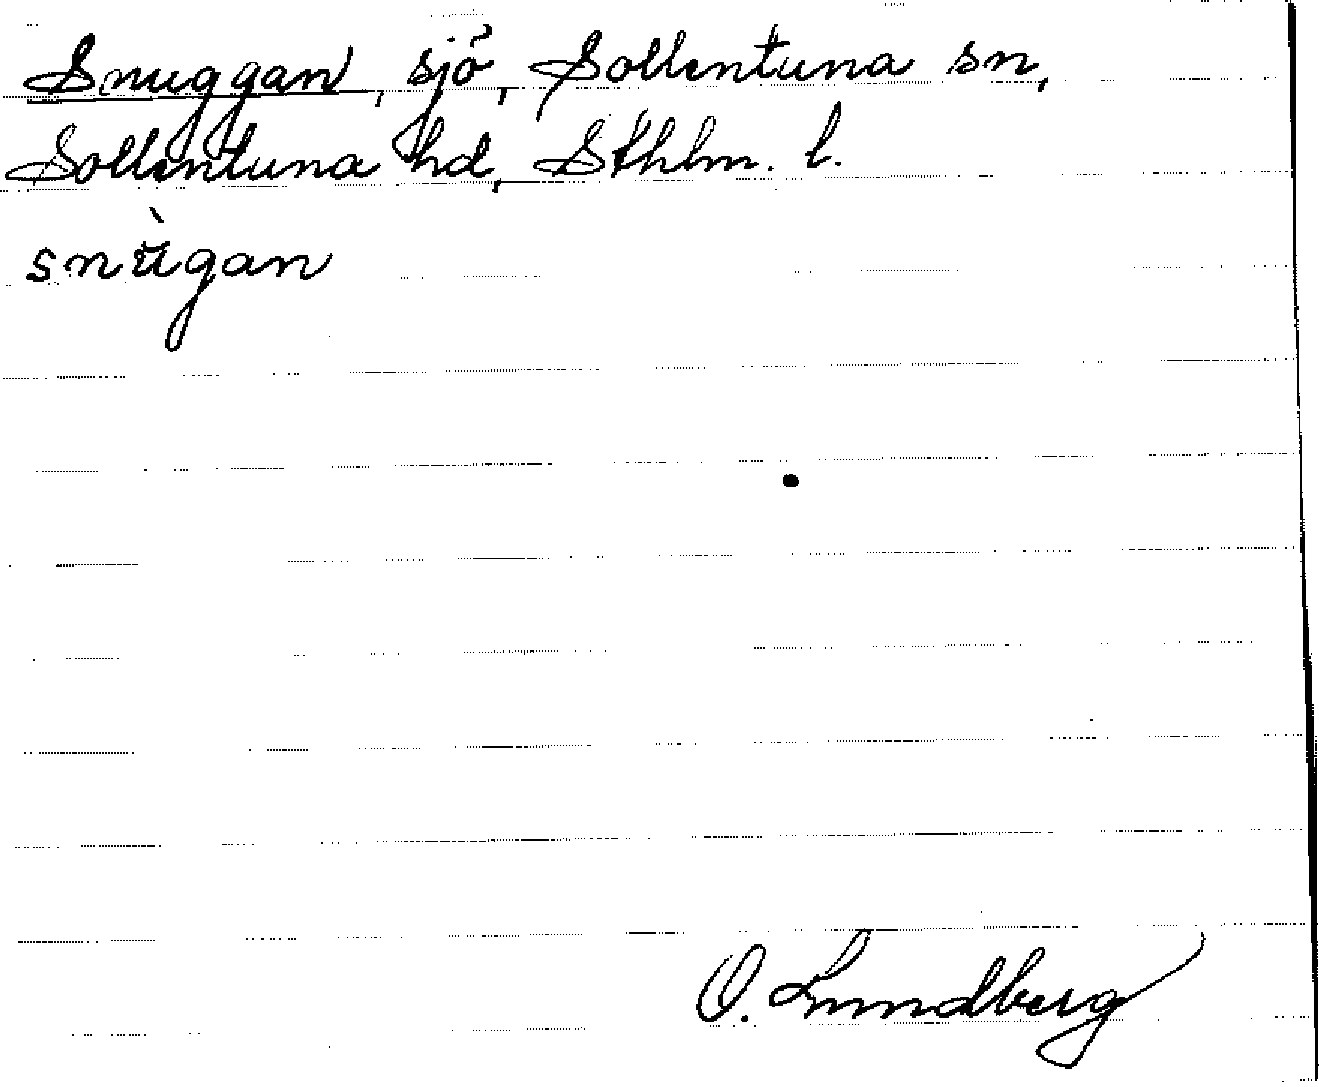 Snuggan, sjö, Sollentuna sn,
Sollentuna hd, Sthlm. l.
snùgan
O. Lundberg